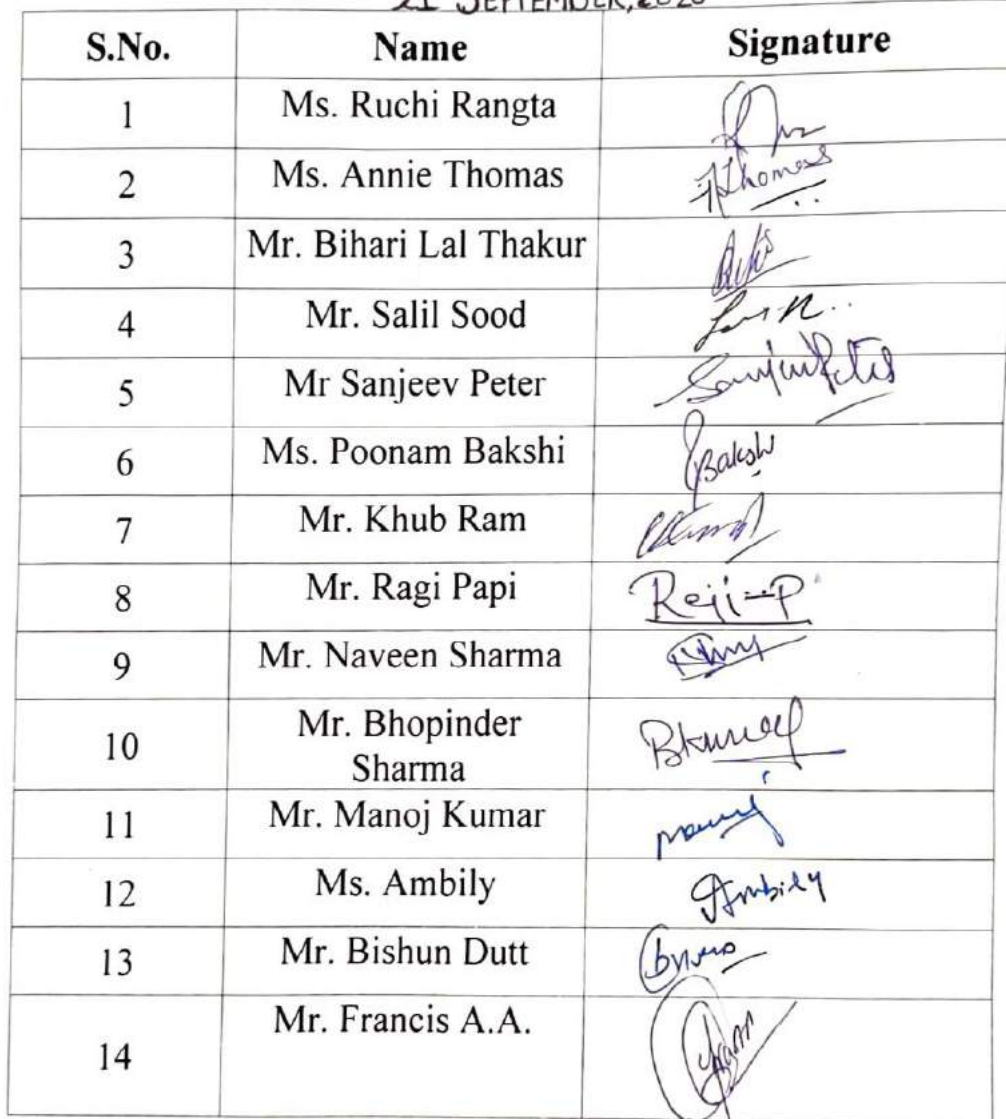 21 SEPTEMBER, 2020
S.No. Name Signature
1 Ms. Ruchi Rangta
2 Ms. Annie Thomas AThomas
3 Mr. Bihari Lal Thakur
4 Mr. Salil Sood
5 Mr Sanjeev Peter
6 Ms. Poonam Bakshi PBakshi
7 Mr. Khub Ram
8 Mr. Ragi Papi Reji-P
9 Mr. Naveen Sharma
10 Mr. Bhopinder
Sharma
11 Mr. Manoj Kumar
12 Ms. Ambily Ambily
13 Mr. Bishun Dutt
14 Mr. Francis A.A.